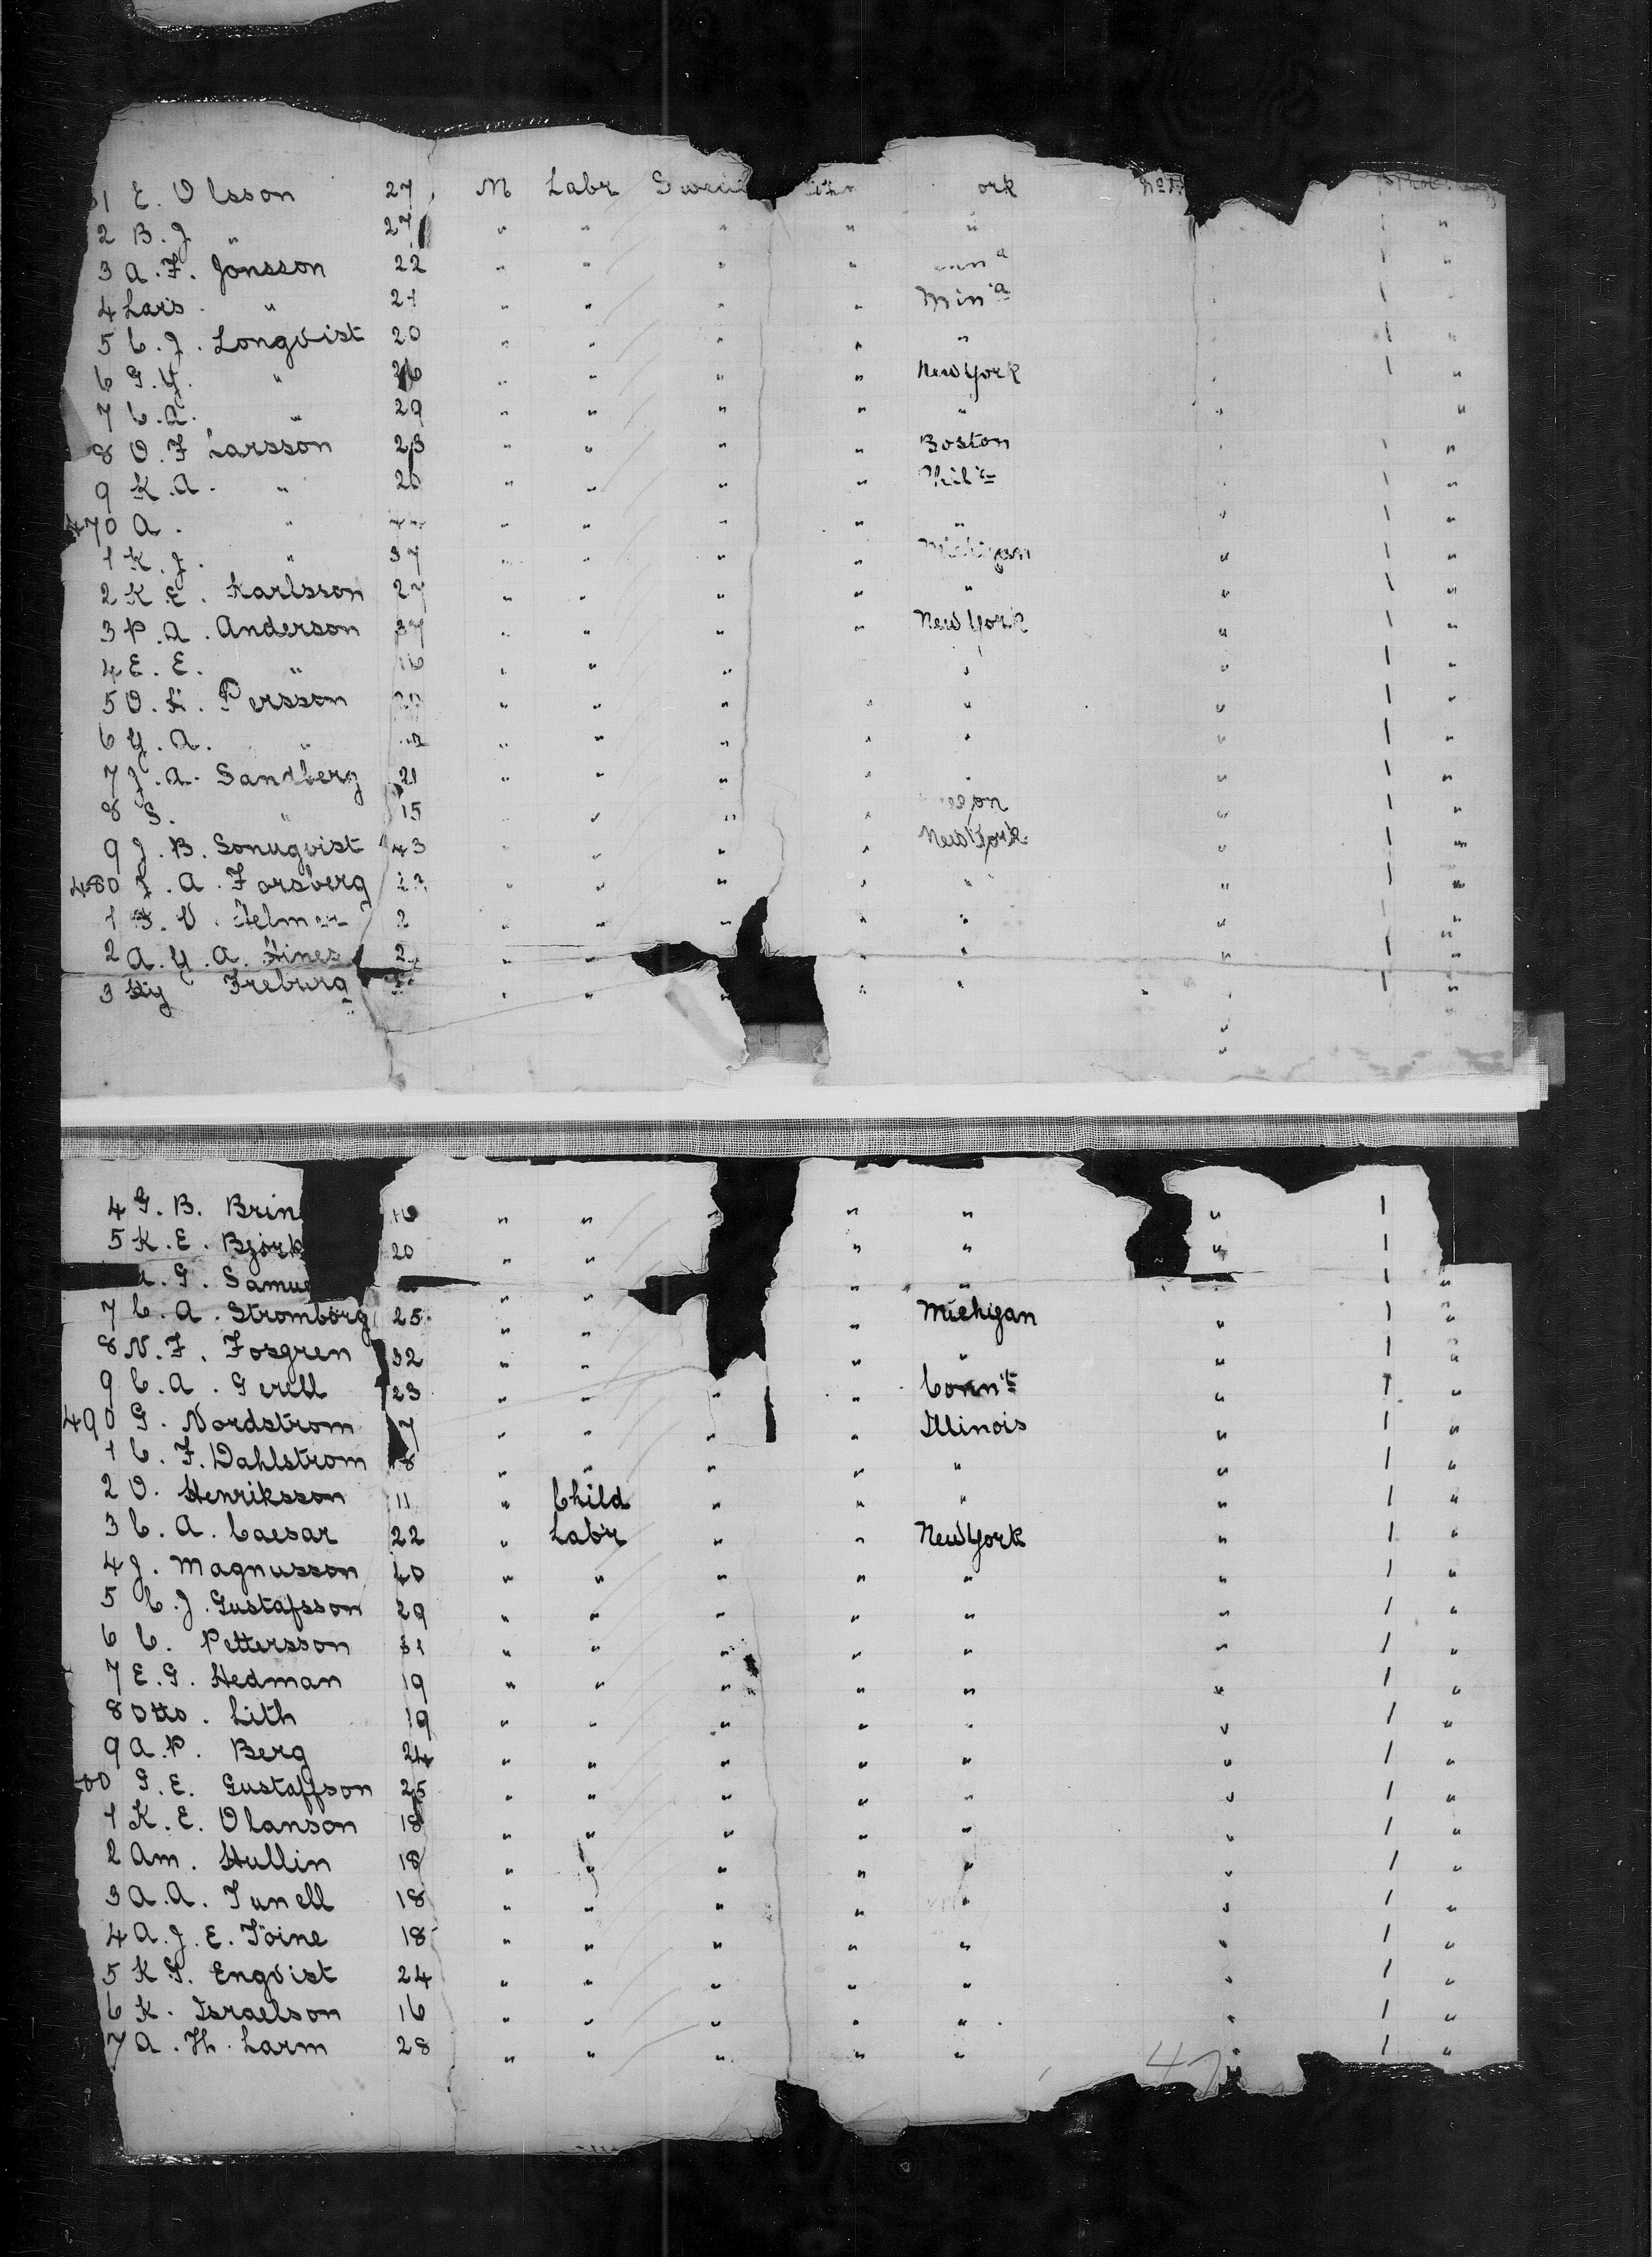 1 E. Olsson 27 M Labr ork
2 B. J " 27 " " " " " "
3 A. F. Jonsson 22 " " " " 1 "
4 Lars " 21 " " " " Min'a 1 "
5 C. J. Longvist 20 " " " " " 1 "
6 G. Y. " " " " " New York 1 "
7 C. A. " 29 " " " " " " "
8 O. F Larsson 23 " " " " Boston 1 "
9 K. A. " " " " " 1 "
470 A. " " " " " " 1 "
1 K. J. " 37 " " " " Michigan " 1 "
2 K E. Karlsson 27 " " " " " " 1 "
3 P. A. Anderson 37 " " " " New York " 1 "
4 E. E. " 16 " " " " " 1 "
5 O. K. Persson " " " " " " 1 "
6 Y. A. " " " " " " " 1 "
7 J. A. Sandberg 21 " " " " " " 1 "
8 S. " 15 " " " " 1 "
9 J. B. Sonuqvist 43 " " " " New York " 1 "
480 A. Forsberg " " " " " " 1 "
1 V. " " " " " 1 "
2 A. Y. A. Hines " " " " " 1 "
3 Hy Freburg " " " " " " 1 "
"
"
4 G. B. Brin 16 " " " " " " 1
5 K. E. Bjork 20 " " " " " 1
G. Samue " " " " 1 "
7 C. A. Stromborg 25 " " " Michigan " 1 "
8 N. F. Fosgren 32 " " " " " 1 "
9 C. A. Gerell 23 " " " " Conn't " 1 "
490 G. Nordstrom 7 " " " " Illinois " 1 "
1 C. F. Dahlstrom 8 " " " " " " 1 "
2 O. Henriksson 11 " Child " " " " 1 "
3 C. A. Caesar 22 " Lab'r " " New York " 1 "
4 J. Magnusson 40 " " " " " " 1 "
5 C. J. Gustafsson 29 " " " " " " 1 "
6 C. Pettersson 31 " " " " " " 1 "
7 E. G. Hedman 19 " " " " " " 1 "
8 Otto. Lith 19 " " " " " " 1 "
9 A. P. Berg 24 " " " " " " 1 "
00 G. E. Gustaffson 25 " " " " " " 1 "
1 K. E. Olanson 18 " " " " " " 1 "
2 Am. Hullin 18 " " " " " " 1 "
3 A. A. Tunell 18 " " " " " " 1 "
4 A. J. E. Töine 18 " " " " " " 1 "
5 K G. Enqvist 24 " " " " " " 1 "
6 K. Israelson 16 " " " " " " 1 "
7 A. H. Larm 28 " " " " " " 1 "
47